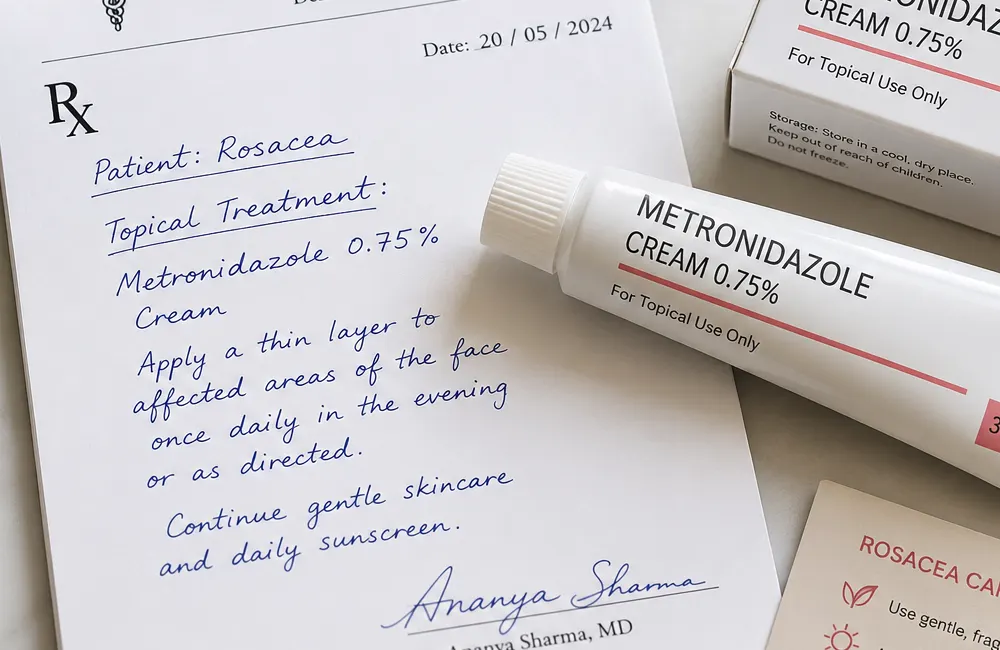 Date: 20 / 05 / 2024
Rx
Patient: Rosacea
Topical Treatment:
Metronidazole 0.75%
Cream
Apply a thin layer to
affected areas of the face
once daily in the evening
or as directed.
Continue gentle skincare
and daily sunscreen.
Ananya Sharma
Ananya Sharma, MD
CREAM 0.75%
For Topical Use Only
Storage: Store in a cool, dry place.
Keep out of reach of children.
Do not freeze.
METRONIDAZOLE
CREAM 0.75%
For Topical Use Only
3
ROSACEA
Use gentle,